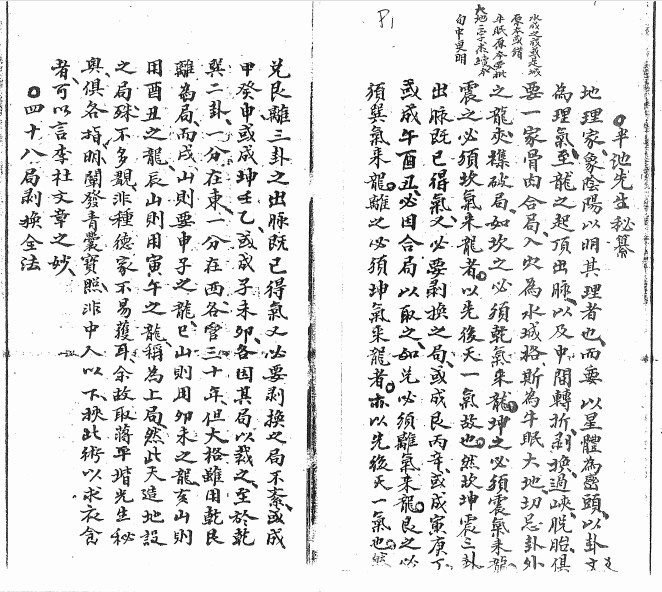 P1
水城之城或是城
原本或錯
牛眠原本要批
大地二字未改今
句中更明
半池先生秘纂
地理家象陰陽以明其理者也而要以星體為巒頭以卦文
為理氣至龍之起頂出脉以及中間轉折剥換過峽脱胎俱
要一家骨肉合局入穴為水城格斯為牛眠大地切忌卦外
之龍夾襍破局如坎之必須乾氣来龍坤之必須震氣来龍
震之必須坎氣来龍者以先後天一氣故也然坎坤震三卦
出脉既已得氣又必要剥換之局或成艮丙辛或成寅庚丁
或成午酉丑必因合局以取之如兑必須離氣来龍艮之必
須巽氣来龍離之必須坤氣来龍者亦以先後天一氣也然
兑艮離三卦之出脉既已得氣又必要剥換之局不紊或成
甲癸申或成坤壬乙或成子未卯各因其局以裁之至於乾
巽二卦一分在東一分在西各管三十年但大格雖用乾艮
離為局而戌山則要申子之龍巳山則用卯未之龍亥山則
用酉丑之龍辰山則用寅午之龍稱為上局然此天造地設
之局殊不多覯非種德家不易獲耳余故取蔣平堦先生秘
奥俱各指明闡發青囊寶照非中人以下挾此術以求衣食
者可以言李杜文章之妙
四十八局剥換全法